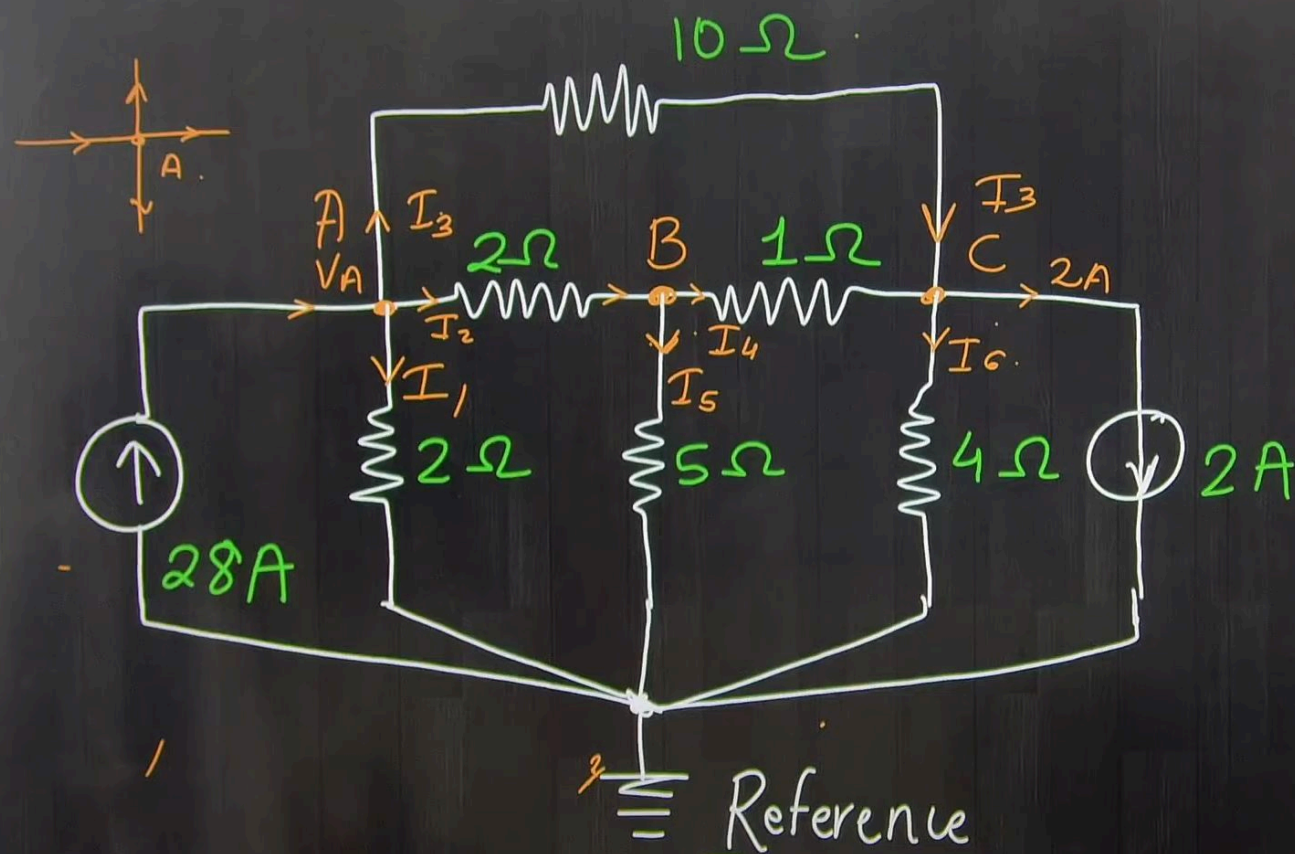 10Ω
A.
A
I3
I3
VA
2Ω
B
1Ω
C
2A
I2
I4
I6.
I1
I5
2Ω
5Ω
4Ω
2A
28A
Reference